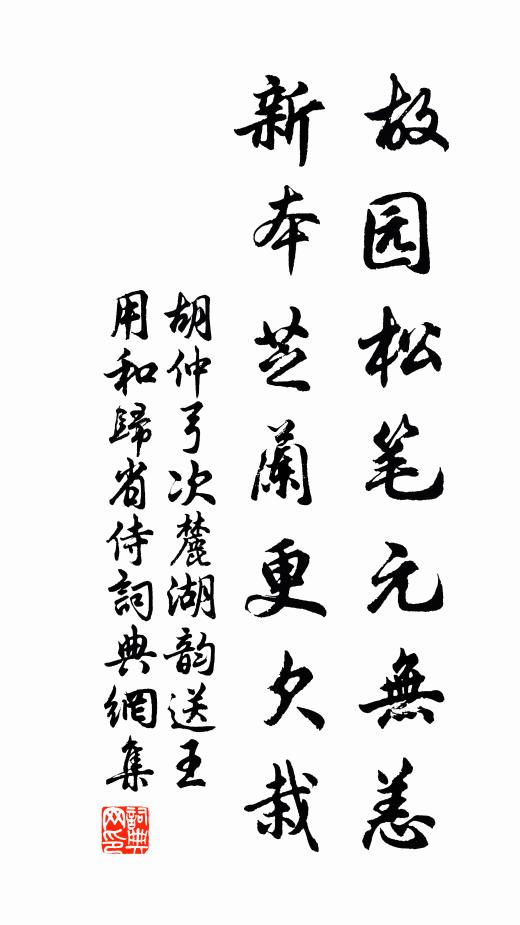 故园松笔元無恙
新本芝蘭更欠栽
胡仲弓次麓湖韵送王
用和歸省侍詞典網集
詞典
网印